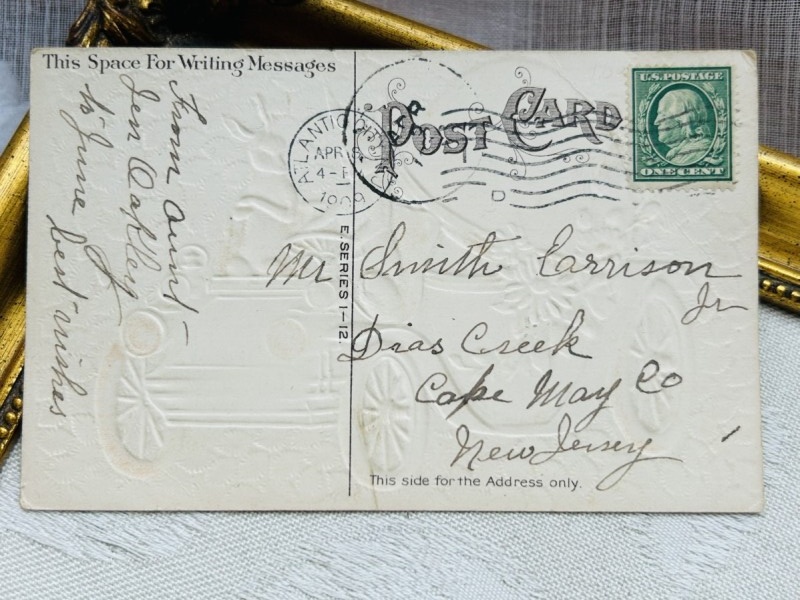 This Space For Writing Messages
POST CARD
U.S. POSTAGE
ONE CENT
ATLANTIC CITY
APR
4-P
1909
D
From Aunt
Jen Oakley
to June
best-wishes
E. SERIES 1-12.
Mr Smith Corrison
Jr
Dias Creek
Cape May Co
New Jersey
This side for the Address only.